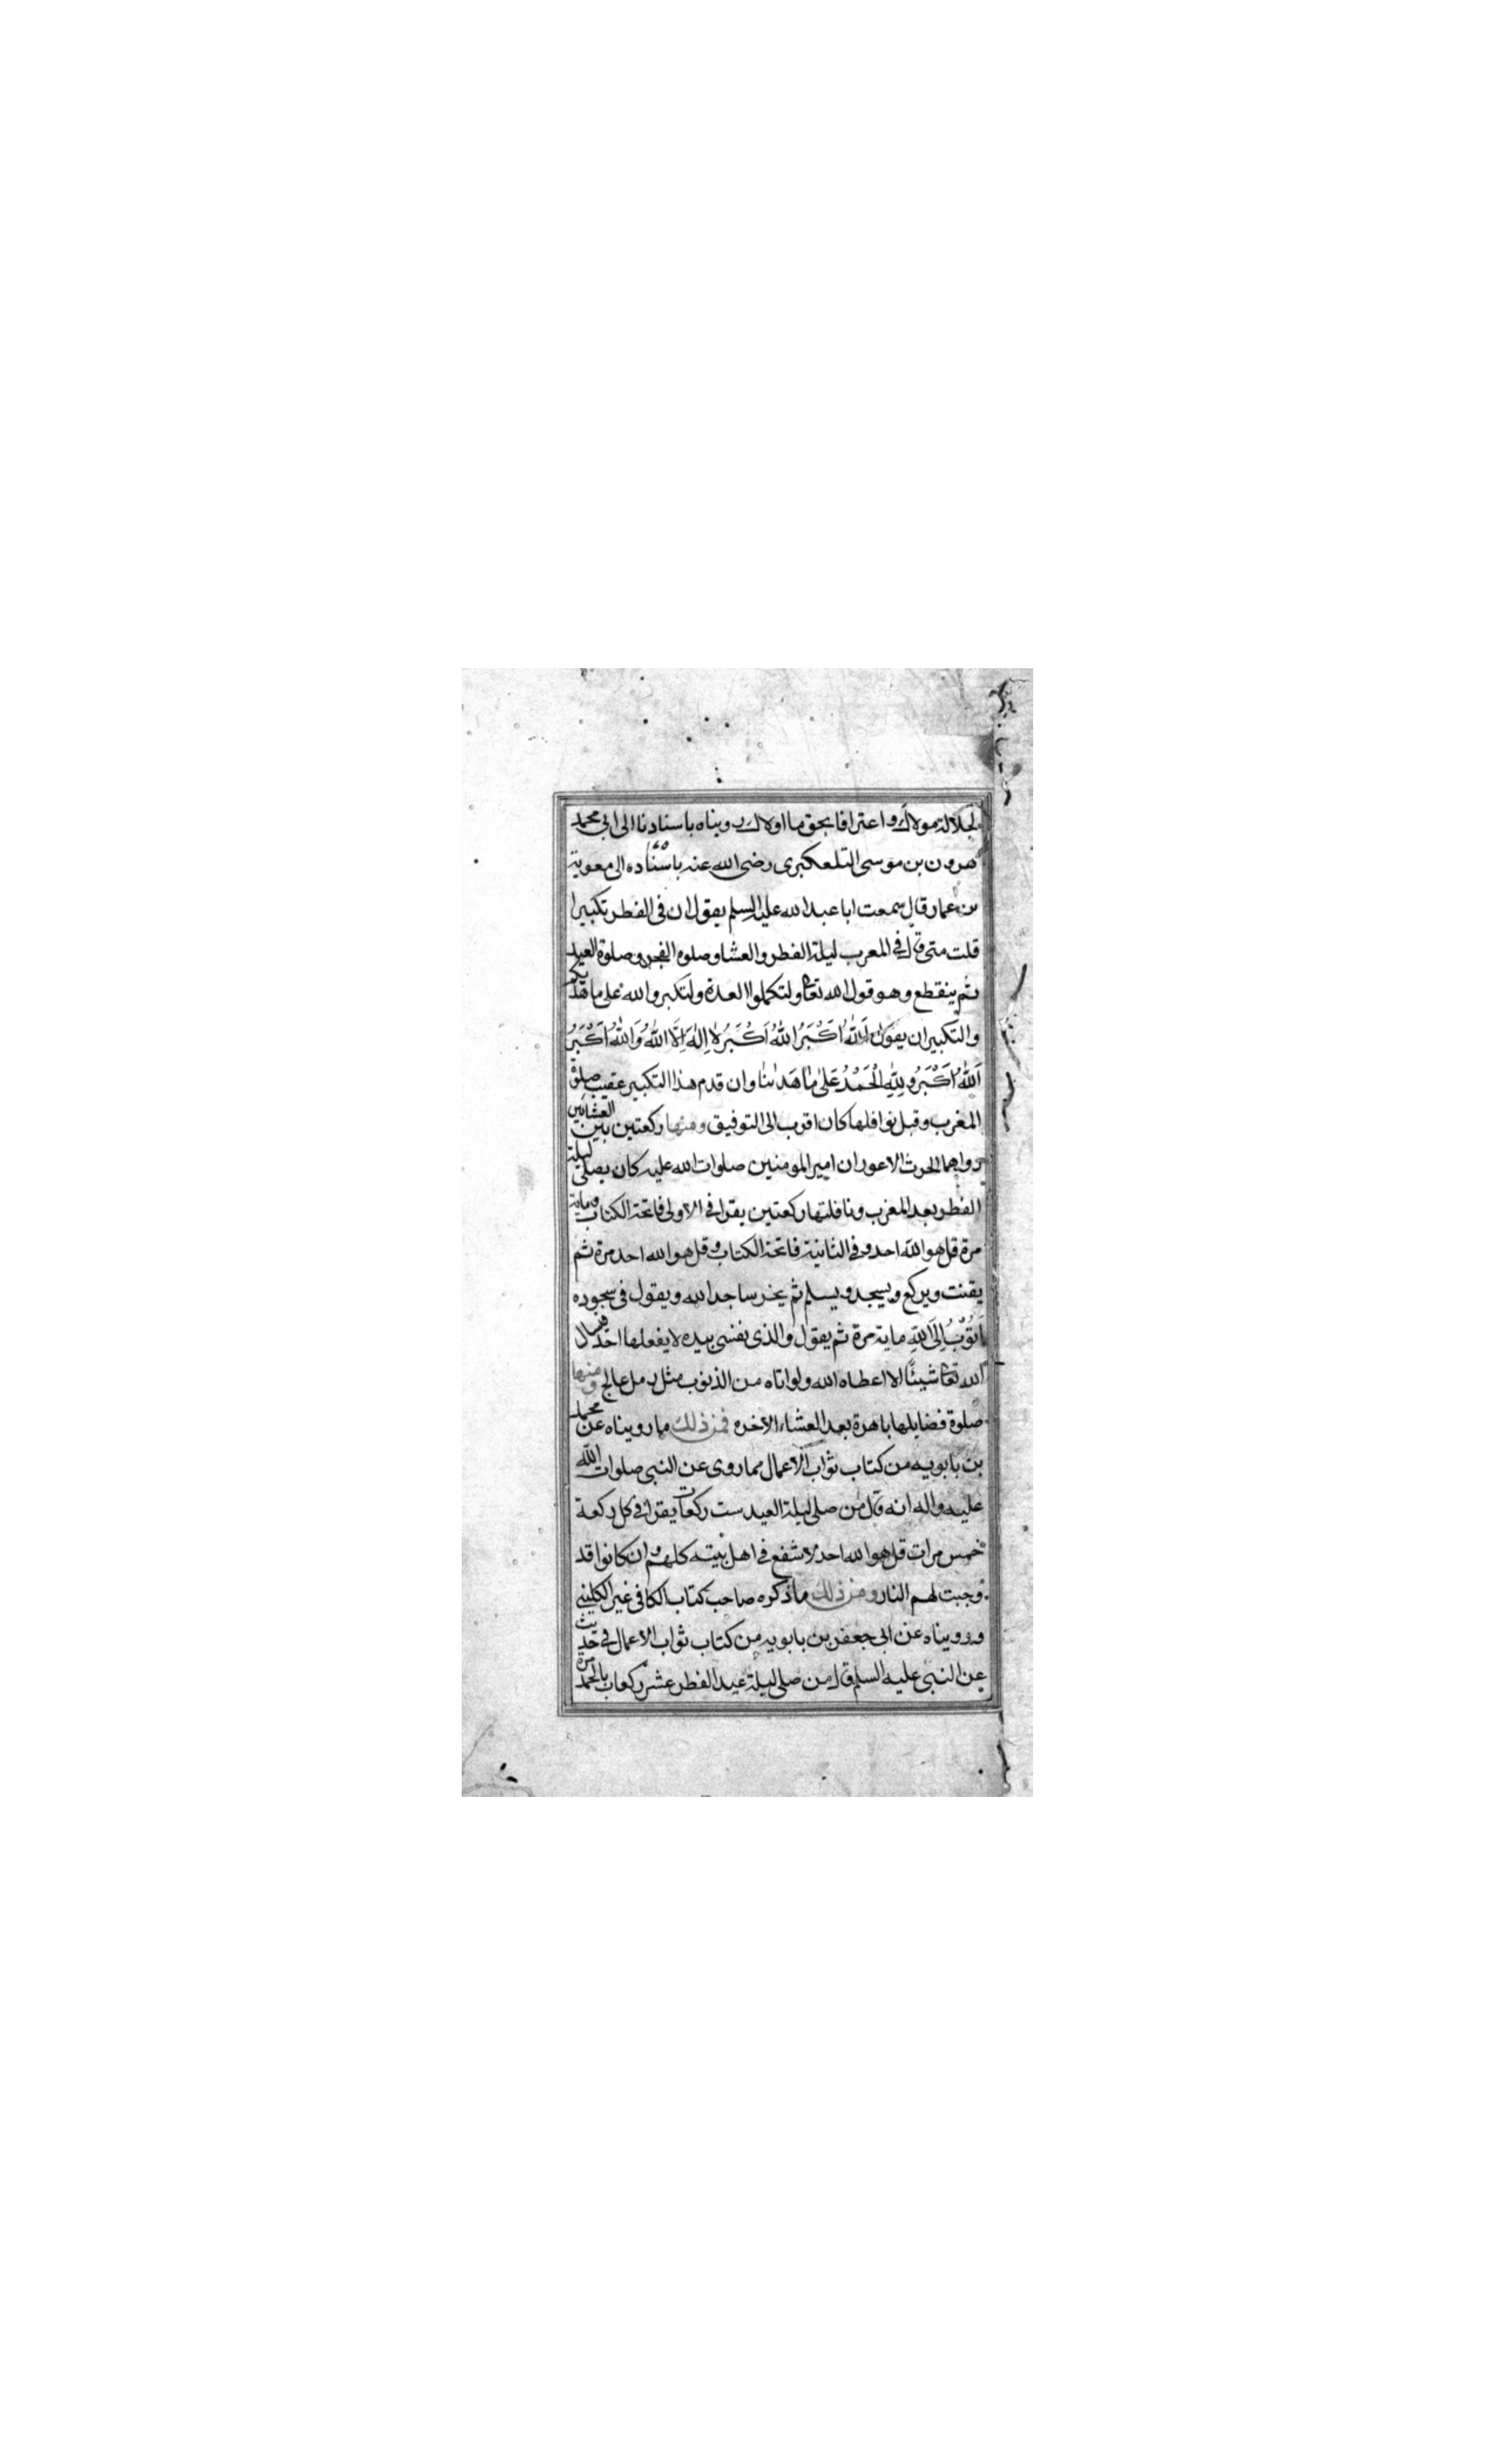 لجلالة مولاك واعترافا بحق ما اولاك رويناه باسنادنا الى ابى محمد
هرون بن موسى التلعكبرى رضى الله عنه باسناده الى معوية
بن عمار قال سمعت ابا عبد الله عليه السلم يقول ان فى الفطر تكبيرا
قلت متى قال فى المغرب ليلة الفطر والعشا وصلوه الفجر وصلوة العيد
ثم ينقطع وهو قول الله تعا ولتكملوا العدة ولتكبروا الله على ما هديكم
والتكبير ان يقول اَللهُ اَكْبَرُ اَللهُ اَكْبَرُ لا اِلهَ اِلَّا اللهُ وَاللهُ اَكْبَرُ
اَللهُ اَكْبَرُ وَلِلّهِ الْحَمْدُ عَلى ما هَدانا وان قدم هذا التكبير عقيب صلوة
المغرب وقبل نوافلها كان اقرب الى التوفيق ومنها ركعتين بين العشائين
رواهما الحرث الاعور ان امير المومنين صلوات الله عليه كان يصلى ليلة
الفطر بعد المغرب ونافلتها ركعتين يقرا فى الاولى فاتحة الكتاب ومايه
مرة قل هو الله احد وفى الثانية فاتحة الكتاب وقل هو الله احد مرة ثم
يقنت ويركع ويسجد ويسلم ثم يخر ساجدا لله ويقول فى سجوده
اَتُوْبُ اِلَى اللهِ ماية مرة ثم يقول والذى نفسى بيده لا يفعلها احد فيسال
الله تعا شيئًا الا اعطاه الله ولو اتاه من الذنوب مثل رمل عالج ومنها
صلوة فضايلها باهرة بعد العشاء الاخره فمن ذلك ما رويناه عن محمد
بن بابويه من كتاب ثواب الاعمال مما روى عن النبى صلوات الله
عليه واله انه قال من صلى ليلة العيد ست ركعات يقرا فى كل ركعة
خمس مرات قل هو الله احد الا شفع فى اهل بيته كلهم وان كانوا قد
وجبت لهم النار ومن ذلك ما ذكره صاحب كتاب الكافى غير الكلينى
ورويناه عن ابى جعفر بن بابويه من كتاب ثواب الاعمال فى حديث
عن النبى عليه السلم قال من صلى ليلة عيد الفطر عشر ركعات بالحمد مرة